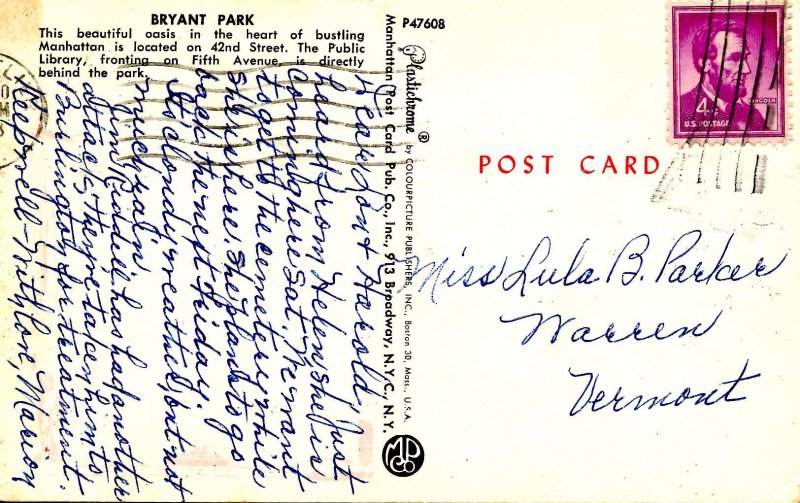 BRYANT PARK
This beautiful oasis in the heart of bustling
Manhattan is located on 42nd Street. The Public
Library, fronting on Fifth Avenue, is directly
behind the park.
P47608
Plastichrome ® by COLOURPICTURE PUBLISHERS, INC., Boston 30, Mass., U.S.A.
Manhattan Post Card Pub. Co., Inc., 913 Broadway, N.Y.C., N.Y.
MPC
Co
4¢
LINCOLN
U.S. POSTAGE
POST CARD
Miss Lula B. Parker
Warren
Vermont
Dear Don + Harold, Just
heard from Helen, she is
coming here Sat. We want
to get to the cemetery while
she is here. She plans to go
back the next Friday.
It's cloudy weather, but not
much rain.
Jim Riddell has had another
attack, they've taken him to
Burlington for treatment.
Keep well - With love, Marion